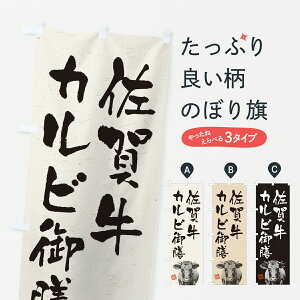 佐賀牛
カルビ御膳
たっぷり
良い柄
のぼり旗
やったね
えらべる3タイプ
A
B
C
佐賀牛
カルビ御膳
佐賀牛
カルビ御膳
佐賀牛
カルビ御膳